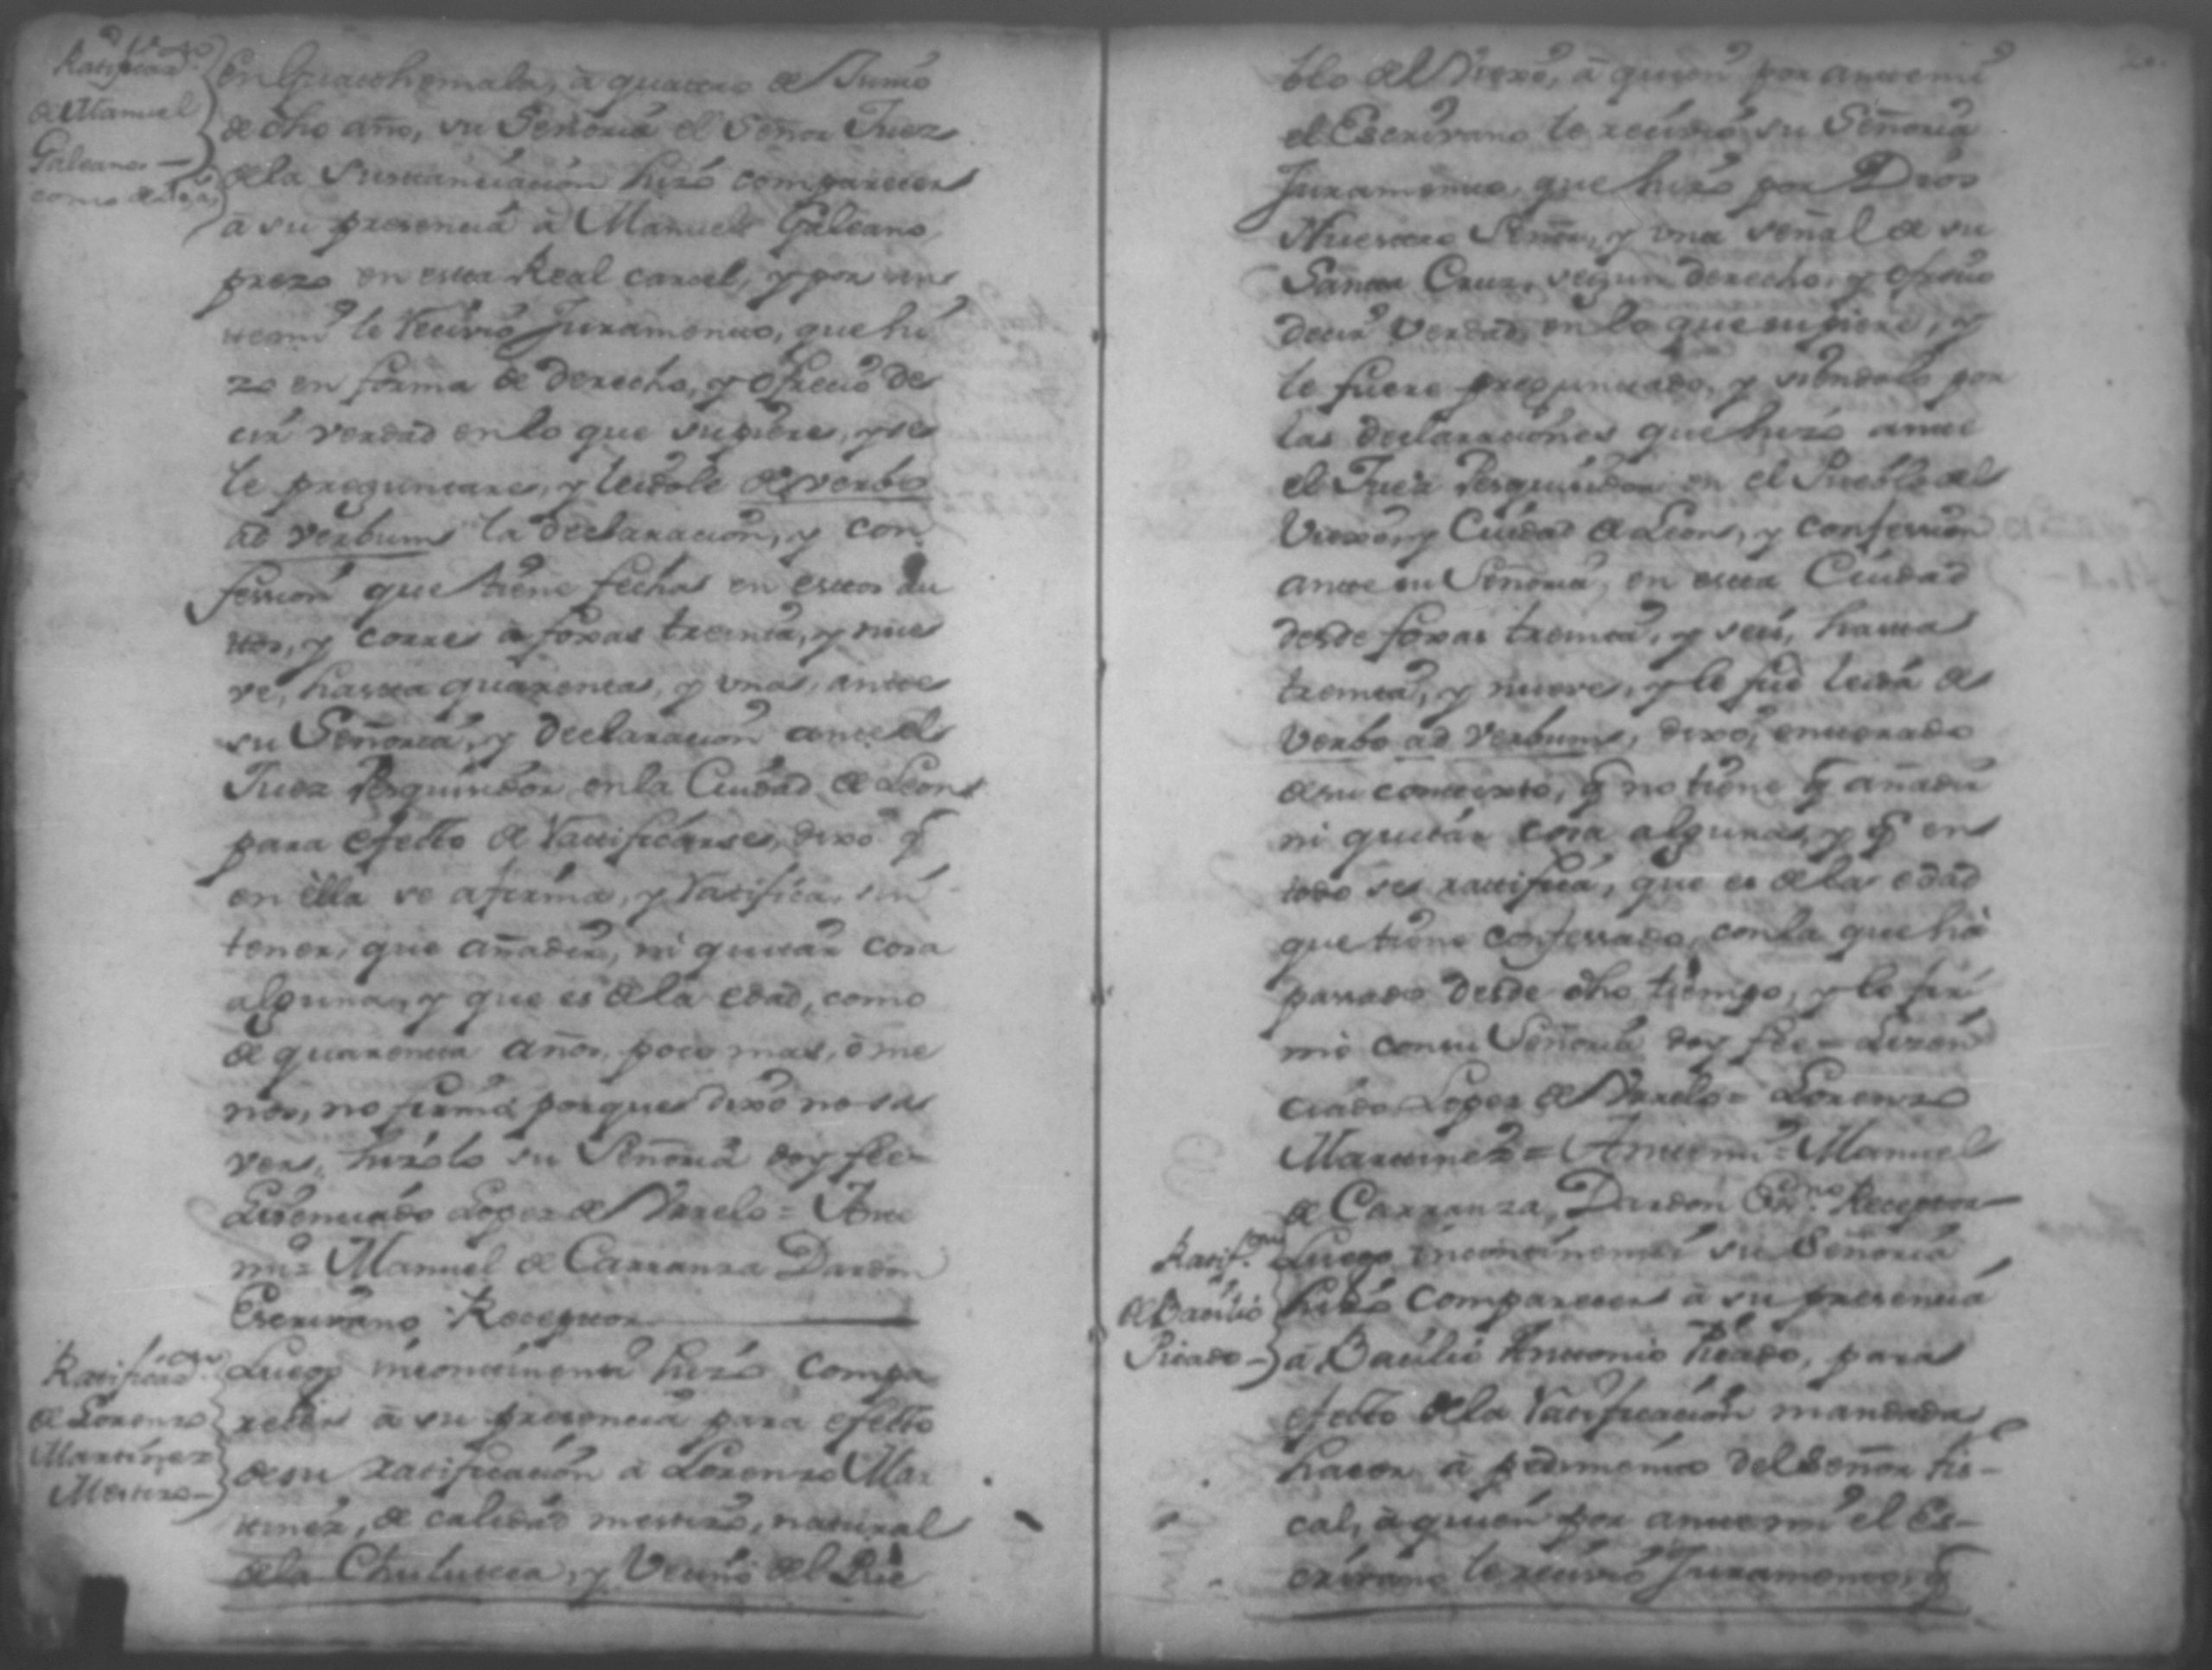 Ratificaón.
de Manuel
Galeano—
como de 40 a.s
En Guathemala, à quatro de Junio
de dho año, su Señoria el Señor Juez
de la Sustanciación hizó comparecer
à su presencia à Manuel Galeano,
prezo en esta Real carcel, y por an
temi le Recivió Juramento, que hi
zo en forma de derecho, y ofreció de
cir verdad en lo que supiere, y se
le preguntare, y leidole de verbo
ad verbum la declaración, y con
fession que tiene fecha en estos au
tos, y corre à foxas treinta, y nue
ve, hasta quarenta, y una, ante
su Señoria, y declaración ante el
Juez Pesquisidor en la Ciudad de Leon
para efecto de Ratificarse, dixo q
en èlla se afirma, y Ratifica, sin
tener, que añadir, ni quitar cosa
alguna, y que es de la edad, como
de quarenta años, poco mas, ò me
nos, no firmá porque dixo no sa
ver, hizólo su Señoria doy fee=
Lizenciado Lopez de Urrelo= Ante
mi= Manuel de Carranza Dardon
Escrivano Receptor
Ratificaón.
de Lorenzo
Martinez
Mestizo—
Luego incontinenti hizó compa
recer à su presencia para efecto
de su ratificación à Lorenzo Mar
tinez, de calidad mestizo, natural
de la Chuluteca, y Vecino del Pue
blo del Viexo, à quien por antemi
el Escrivano le recivió su Señoria
Juramento, que hizo por Dios
Nuestro Señor, y una señal de su
Santa Cruz, segun derecho, y ofreció
decir verdad en lo que supiere, y
le fuere preguntado, y siéndolo por
las declaraciones que hizó ante
el Juez Pesquisidor en el Pueblo del
Viexo, y Ciudad de Leon, y confession
ante su Señoria, en esta Ciudad
desde foxas treinta, y seis, hasta
treinta, y nueve, y le fué leida de
Verbo ad verbum, dixo, enterado
de su contexto, q no tiene q añadir
ni quitar cosa alguna, y q en
todo se ratifica, que es de la edad
que tiene confessado, con la que há
passado desde dho tiempo, y lo fir
mó con su Señoria doy fee= Lizen
ciado Lopez de Urrelo= Lorenzo
Martinez= Antemi= Manuel
de Carranza, Dardon Esno. Receptor—
Ratif.on
de Basilio
Picado—
Luego incontinenti su Señoria
hizó comparecer à su presencia
à Basilio Antonio Picado, para
efecto de la Ratificación mandada
hacer, à pedimento del Señor Fis-
cal, à quien por antemi el Es-
crivano le recivió Juramento, q